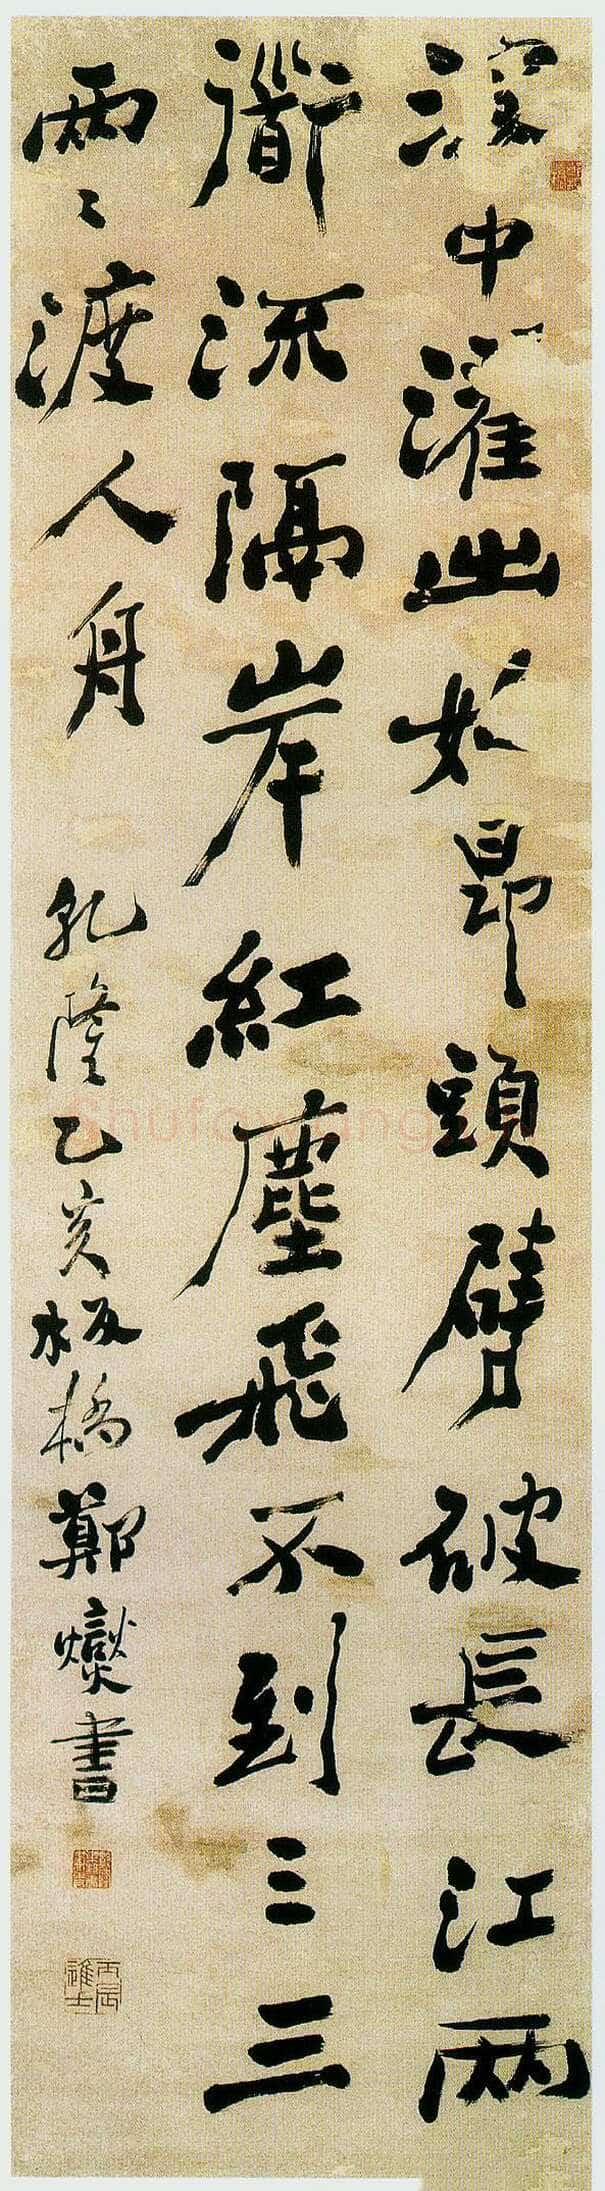 中濯出昂頭劈破長江兩
衟流隔岸紅塵飛不到三三
兩〻渡人舟
乾隆乙亥板橋鄭燮書
丙辰進士